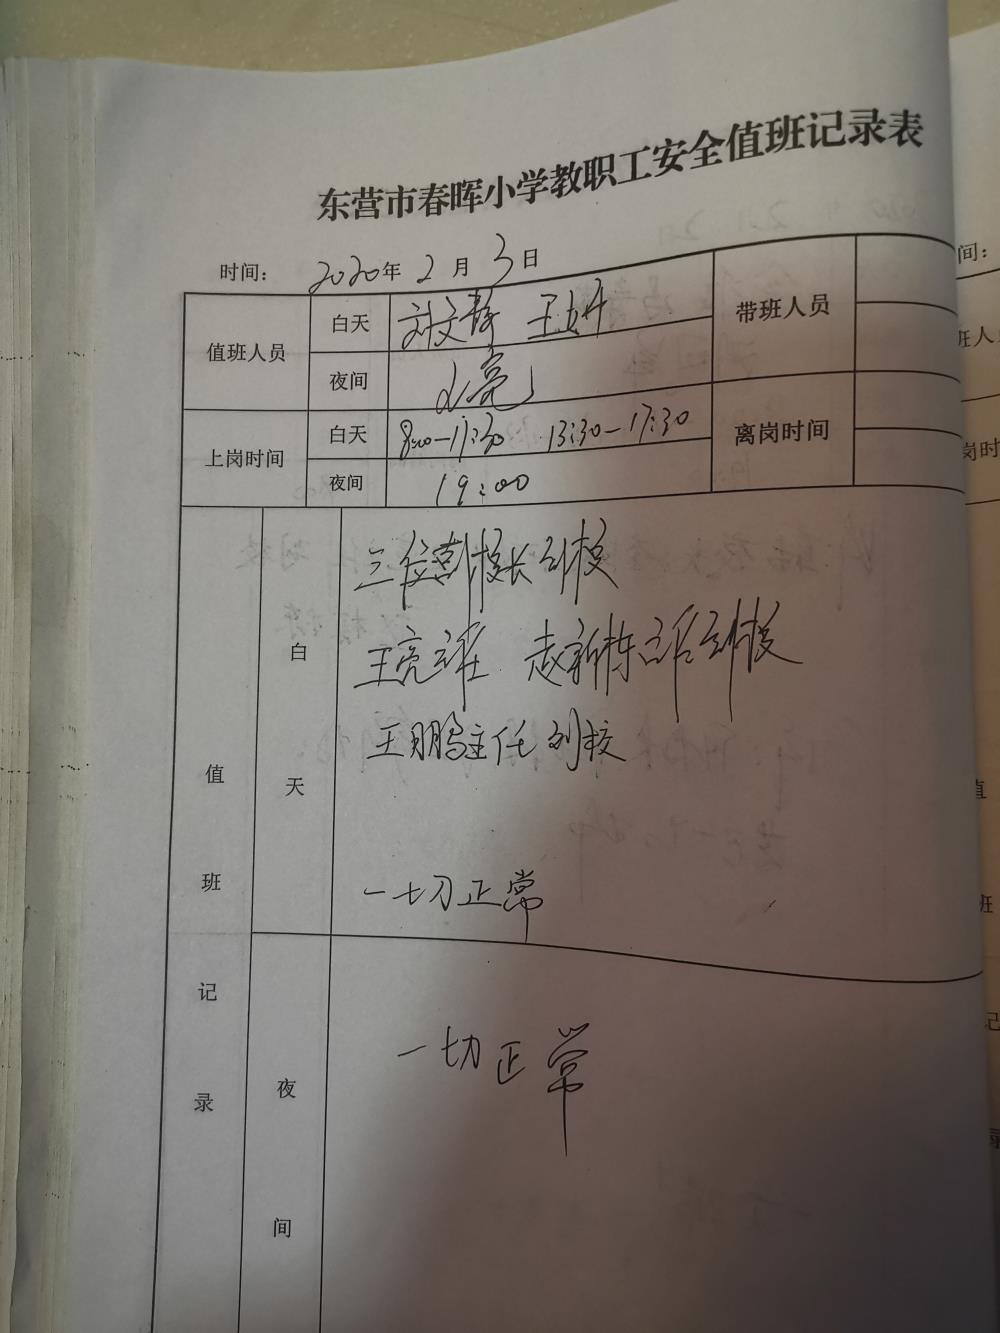 东营市春晖小学教职工安全值班记录表
时间： 2020年 2 月 3 日
值班人员 白天 刘文静 王妍 带班人员
夜间 亮
上岗时间 白天 8:00—11:30 13:30—17:30 离岗时间
夜间 19:00
值班记录
白天
三位副校长到校
王亮主任 赵新栋主任到校
王鹏主任到校
一切正常
夜间
一切正常
间：